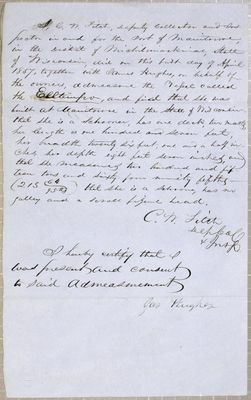 I C. W. Fitch, deputy Collector and Ins
pector in and for the Port of Manitowoc
in the district of Michilimackinac, State
of Wisconsin did on this day of April
1857, together with James Hughes, on behalf of
the owners, admeasure the Vessel called
the and find that she was
built at Manitowoc in the State of Wisconsin
that she is a Schooner, has one deck two masts
her length is one hundred and seven feet,
her breadth twenty six feet, one and a half in
ches her depth eight feet seven inches and
that she measures two hundred and fif
teen tons and sixty four ninety fifths
(215 64/95) that she is a Schooner, has no
galley and a scroll figure head,
C. W. Fitch
Dep Col
& Insp
I hereby certify that I
was present and consent
to said Admeasurement
Jas Hughes